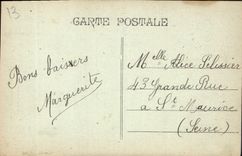 13
CARTE POSTALE
Bons baisers
Marguerite
Melle Alice Pelissier
43 Grande Rue
à St Maurice
(Seine)